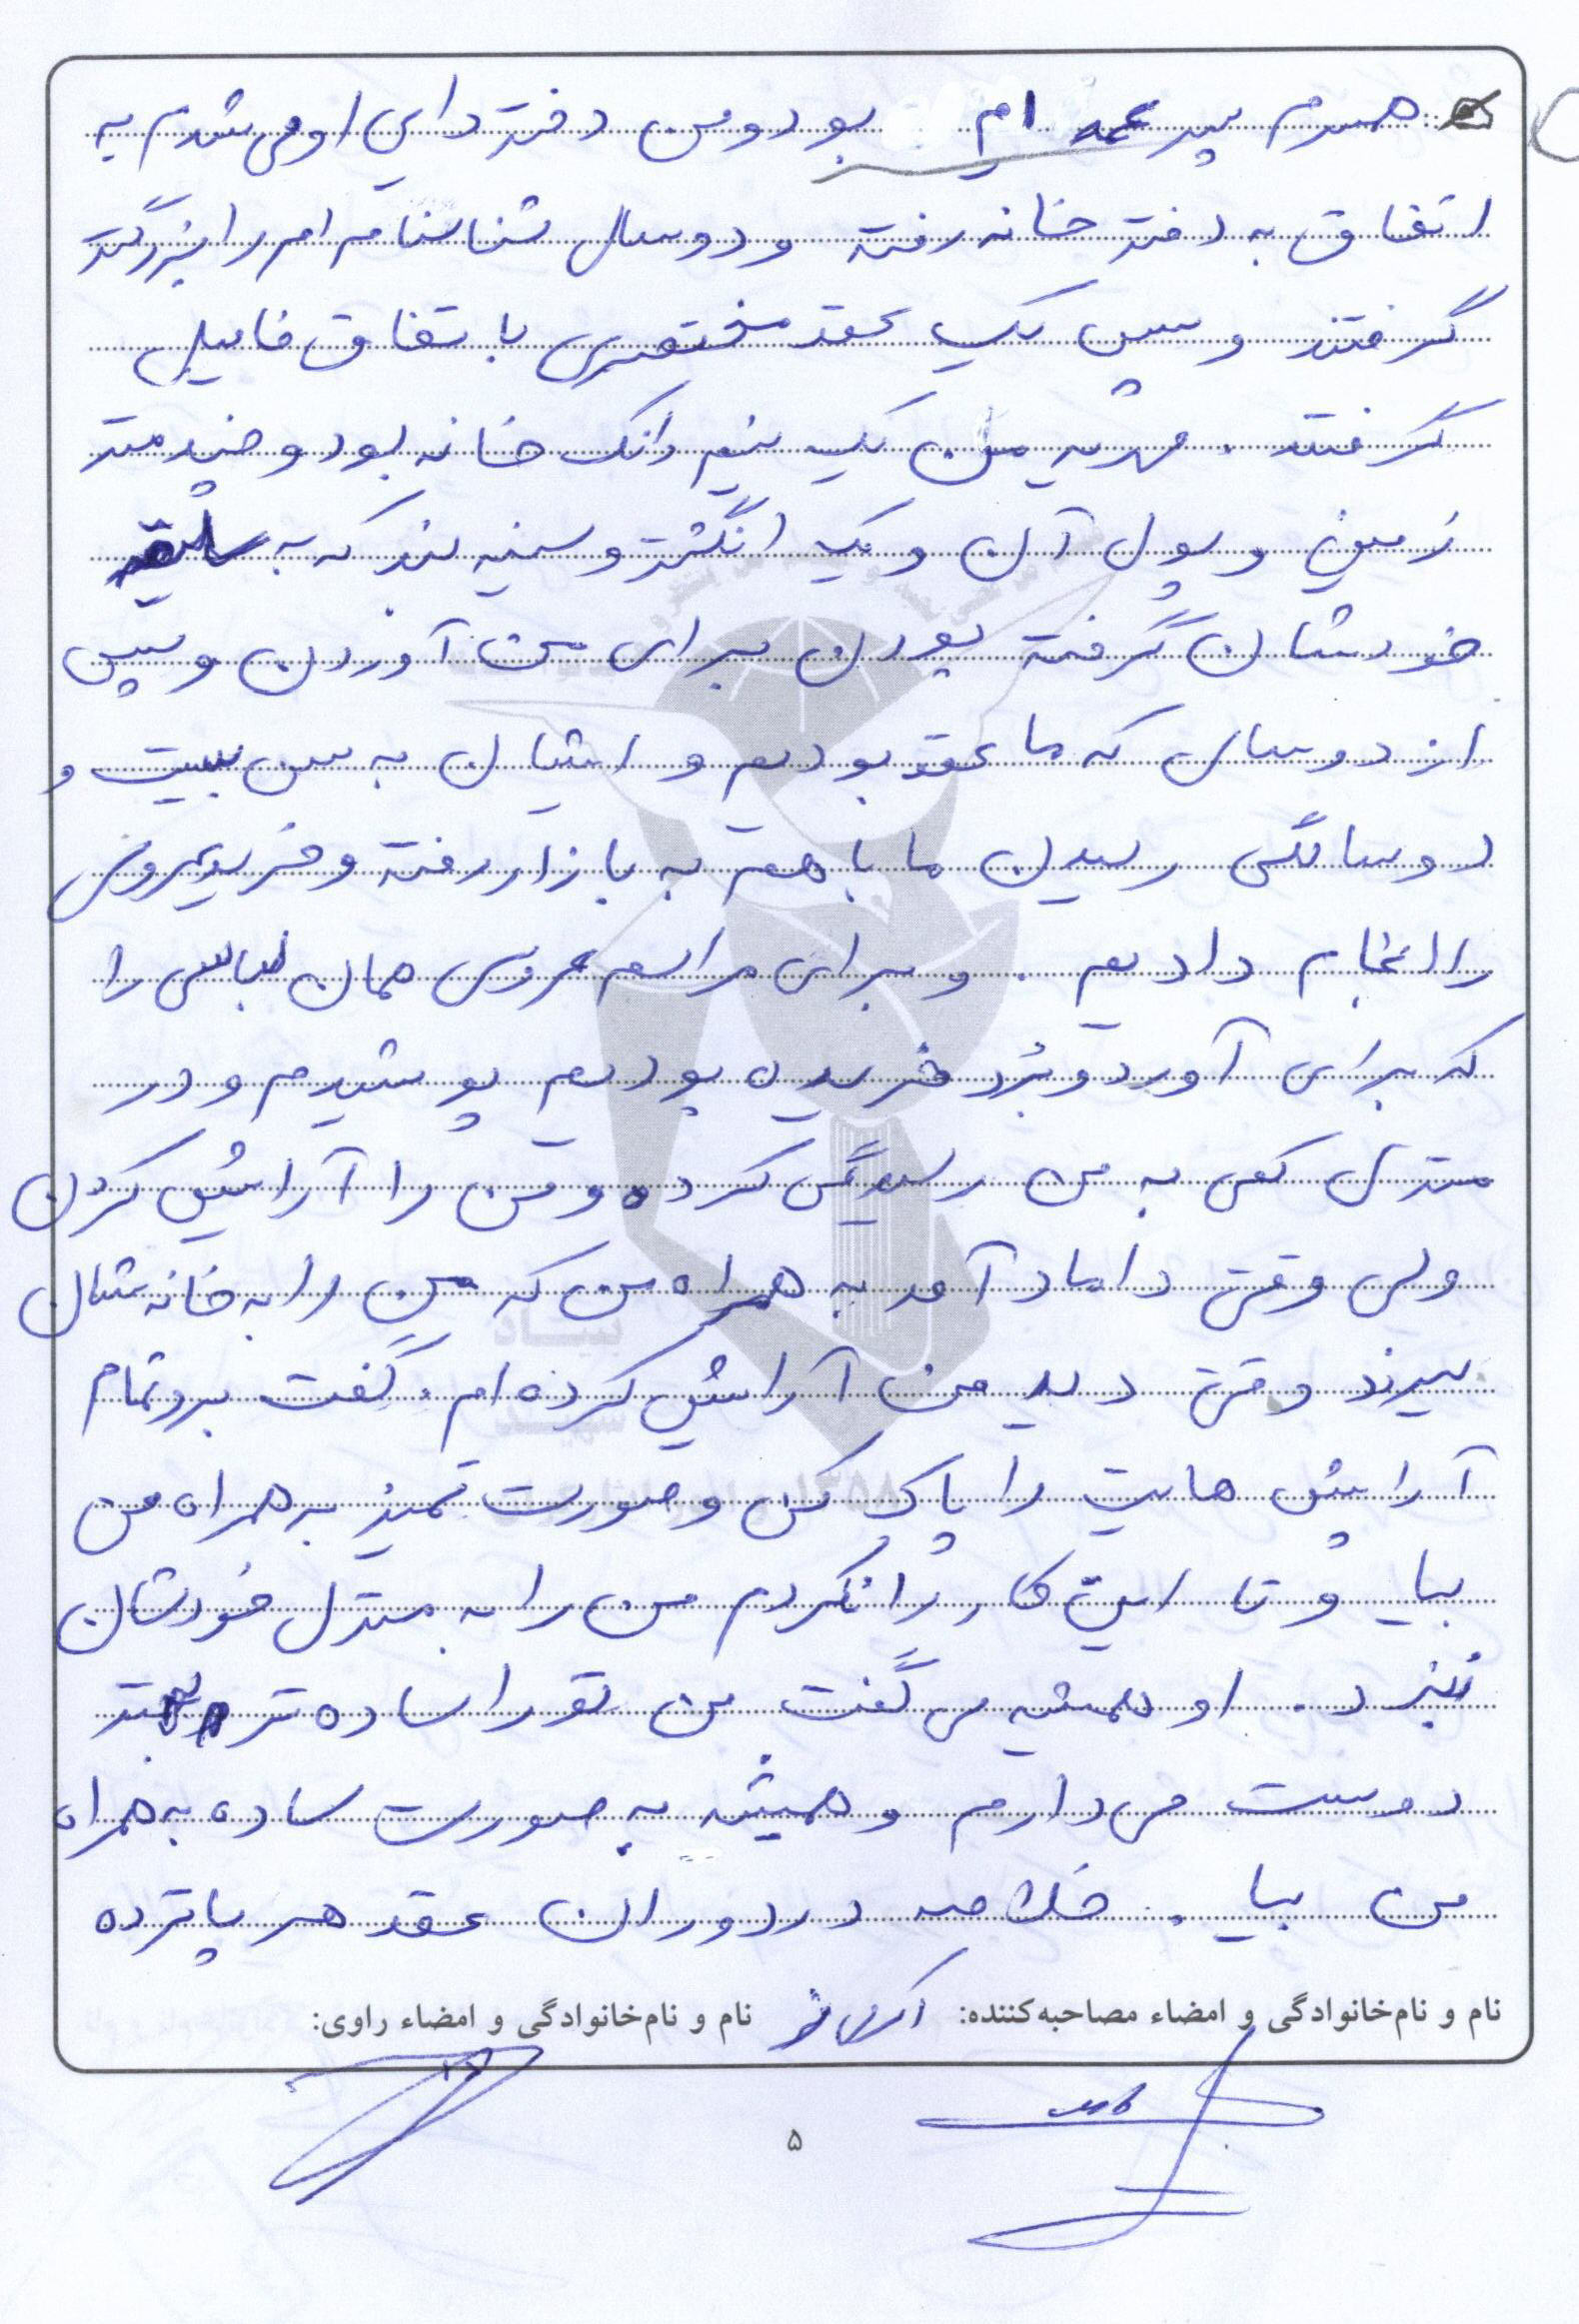 همسرم پسر عمه ام بود و من دختر دایی او می شدم به
اتفاق به دفتر خانه رفته و دو سال شناسنامه ام را بزرگتر
گرفتند و سپس یک عقد مختصری با تفاق فامیل
گرفتند . مهریه من یک نیم دانگ خانه بود و چند متر
زمین و پول آن و یک انگشتر و سینه بند که به سلیقه
خودشان گرفته بودن برای من آوردن و سپس
از دو سال که ما عقد بودیم و ایشان به سن بیست و
دو سالگی رسیدن ما با هم به بازار رفته و خرید عروسی
را انجام دادیم . و برای مراسم عروسی همان لباسی را
که برای آورد و برد خریده بودیم پوشیدم و در
منزل کمی به من رسیدگی کرده و من را آرایش کردن
ولی وقتی داماد آمد به همراه من که من را به خانه شان
ببرند وقتی دید من آرایش کرده ام . گفت برو تمام
آرایش هایت را پاک کن و صورت تمیز به همراه من
بیا و تا این کار را نکردم من را به منزل خودشان
نبرد . او همیشه می گفت من تو را ساده تر بهتر
دوست می دارم و همیشه به صورت ساده به همراه
من بیا . خلاصه در دوران عقد هر پانزده
نام و نام‌خانوادگی و امضاء مصاحبه‌کننده: نام و نام‌خانوادگی و امضاء راوی:
۵